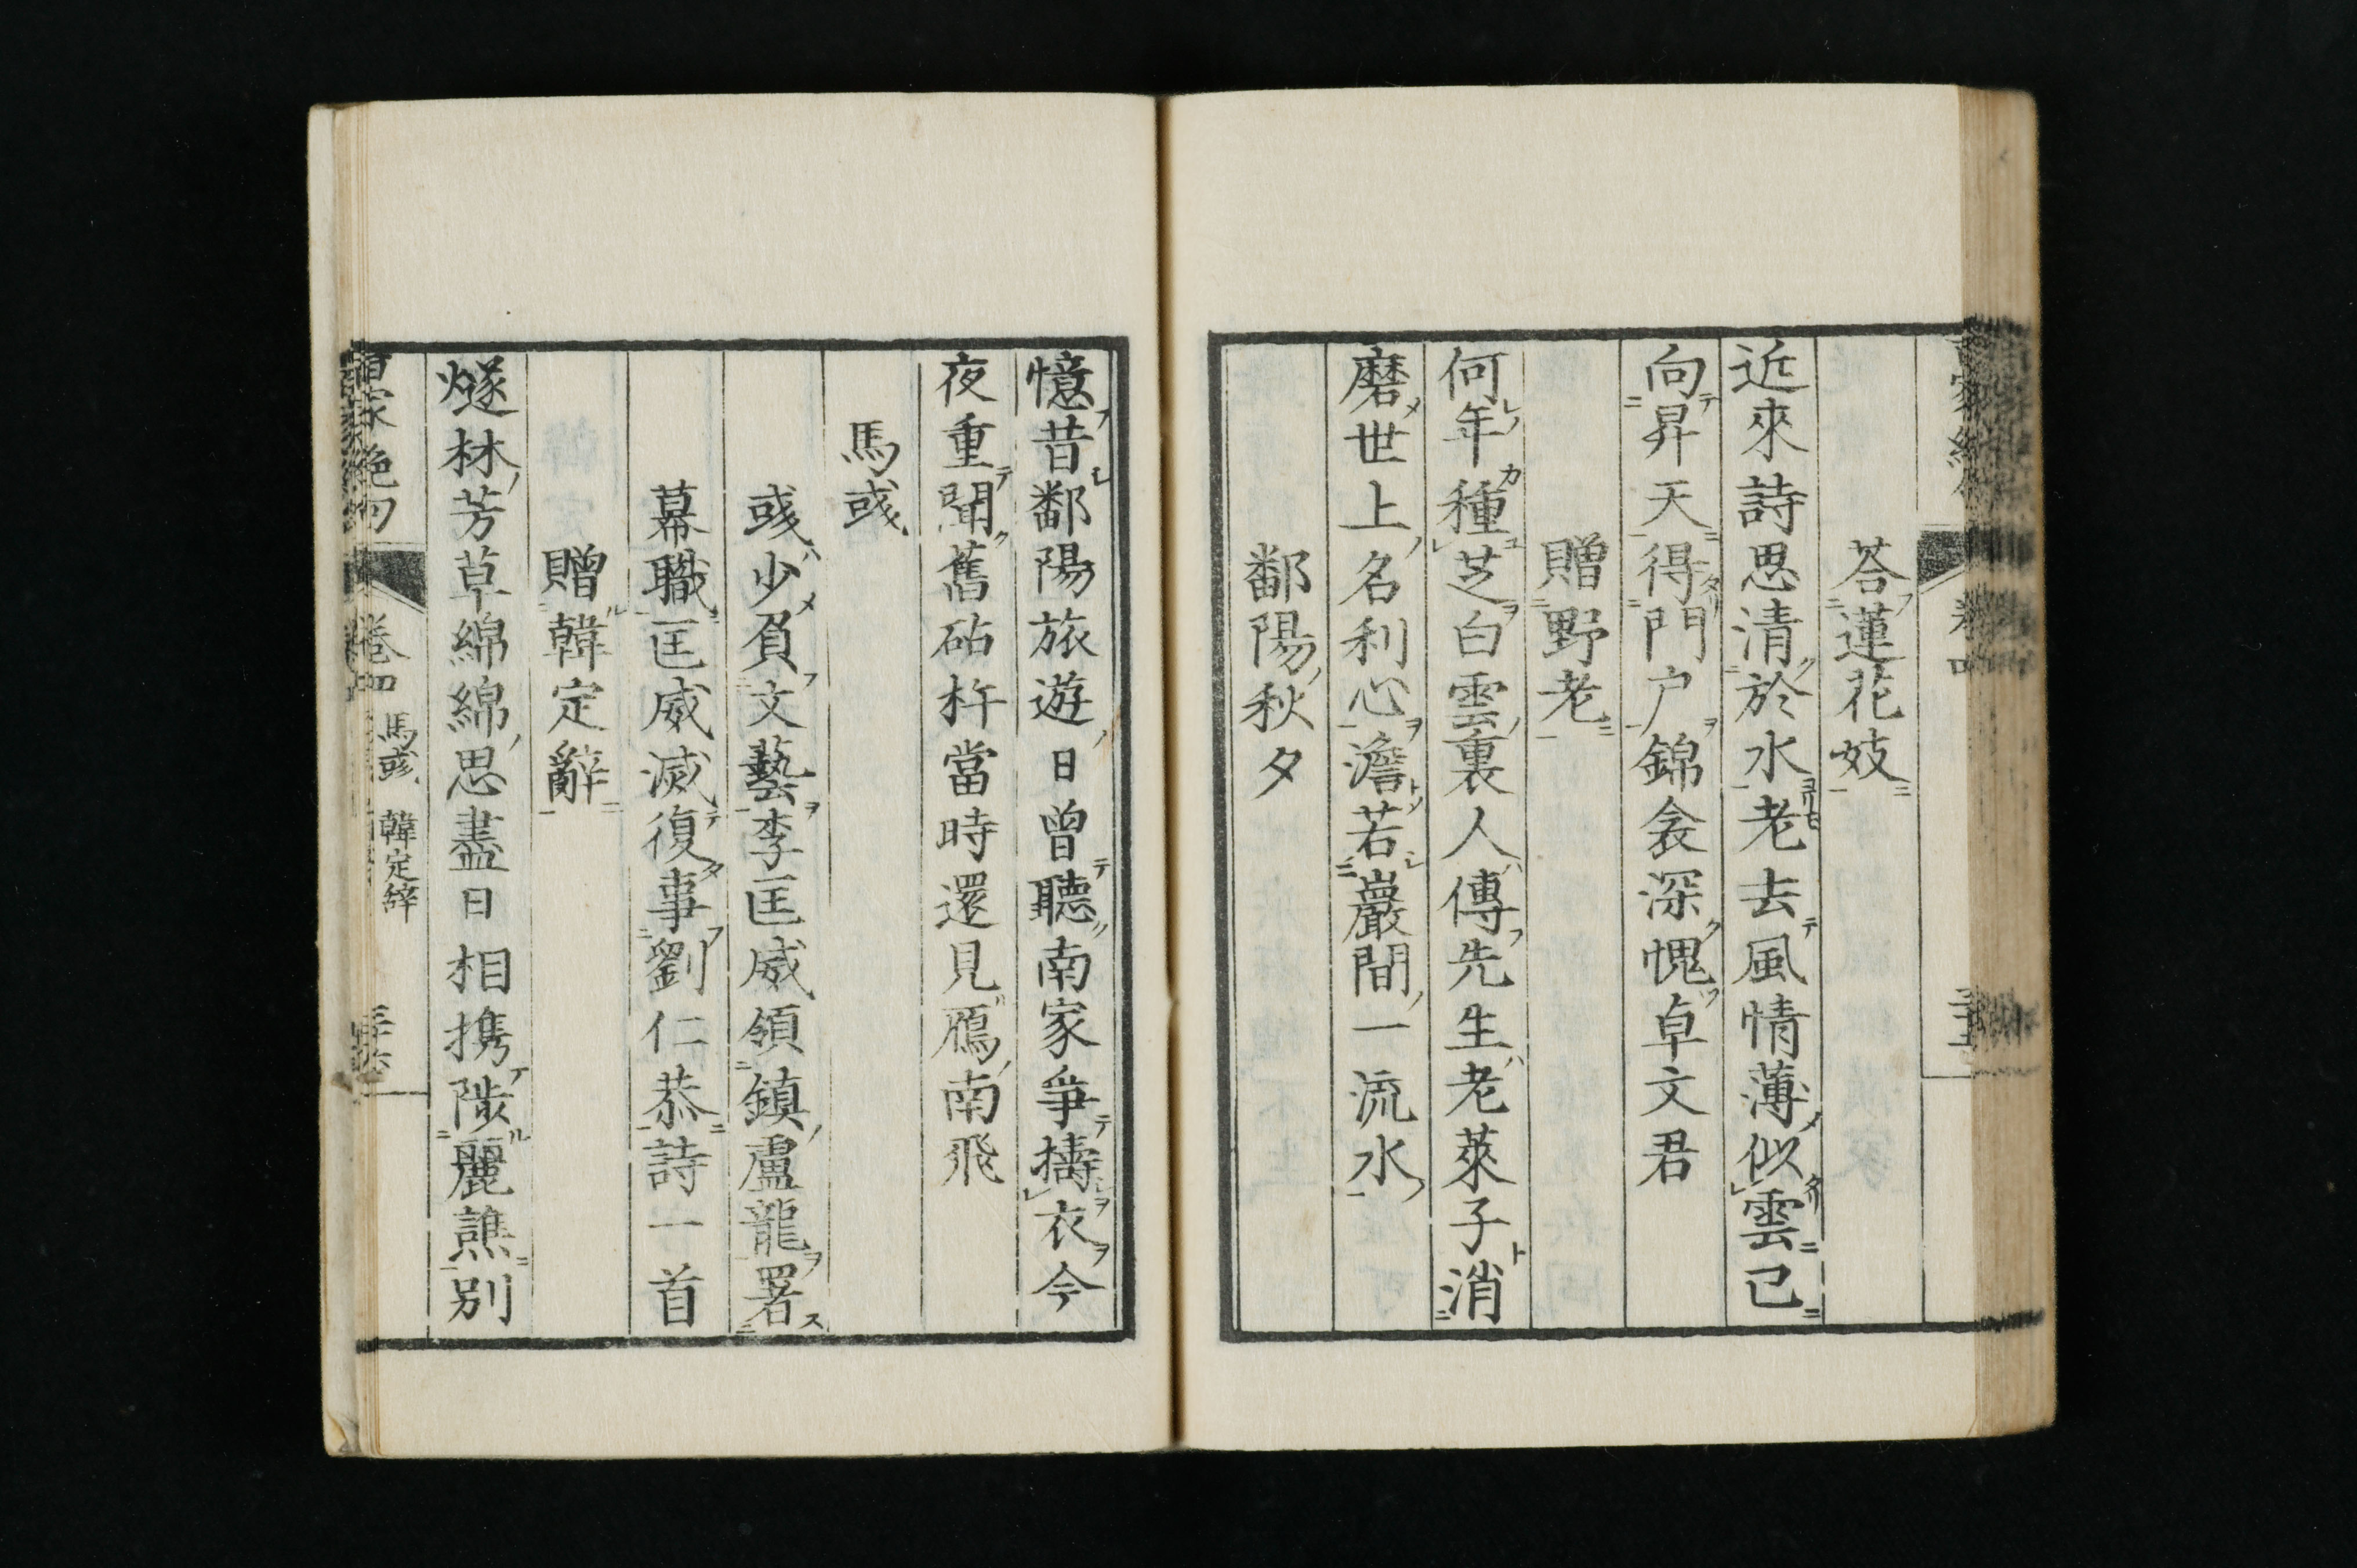 荅蓮花妓
近來詩思清於水老去風情薄似雲已
向昇天得門户錦衾深愧卓文君
贈野老
何年種芝白雲裏人傳先生老萊子消
磨世上名利心澹若巖間一流水
鄱陽秋夕
憶昔鄱陽旅遊日曾聽南家爭擣衣今
夜重聞舊砧杵當時還見鴈南飛
馬彧
彧少負文藝李匡威領鎮盧龍署
幕職匡威滅復事劉仁恭詩一首
贈韓定辭
燧林芳草綿綿思盡日相携陟麗譙別
絶句 卷四 馬彧 韓定辭